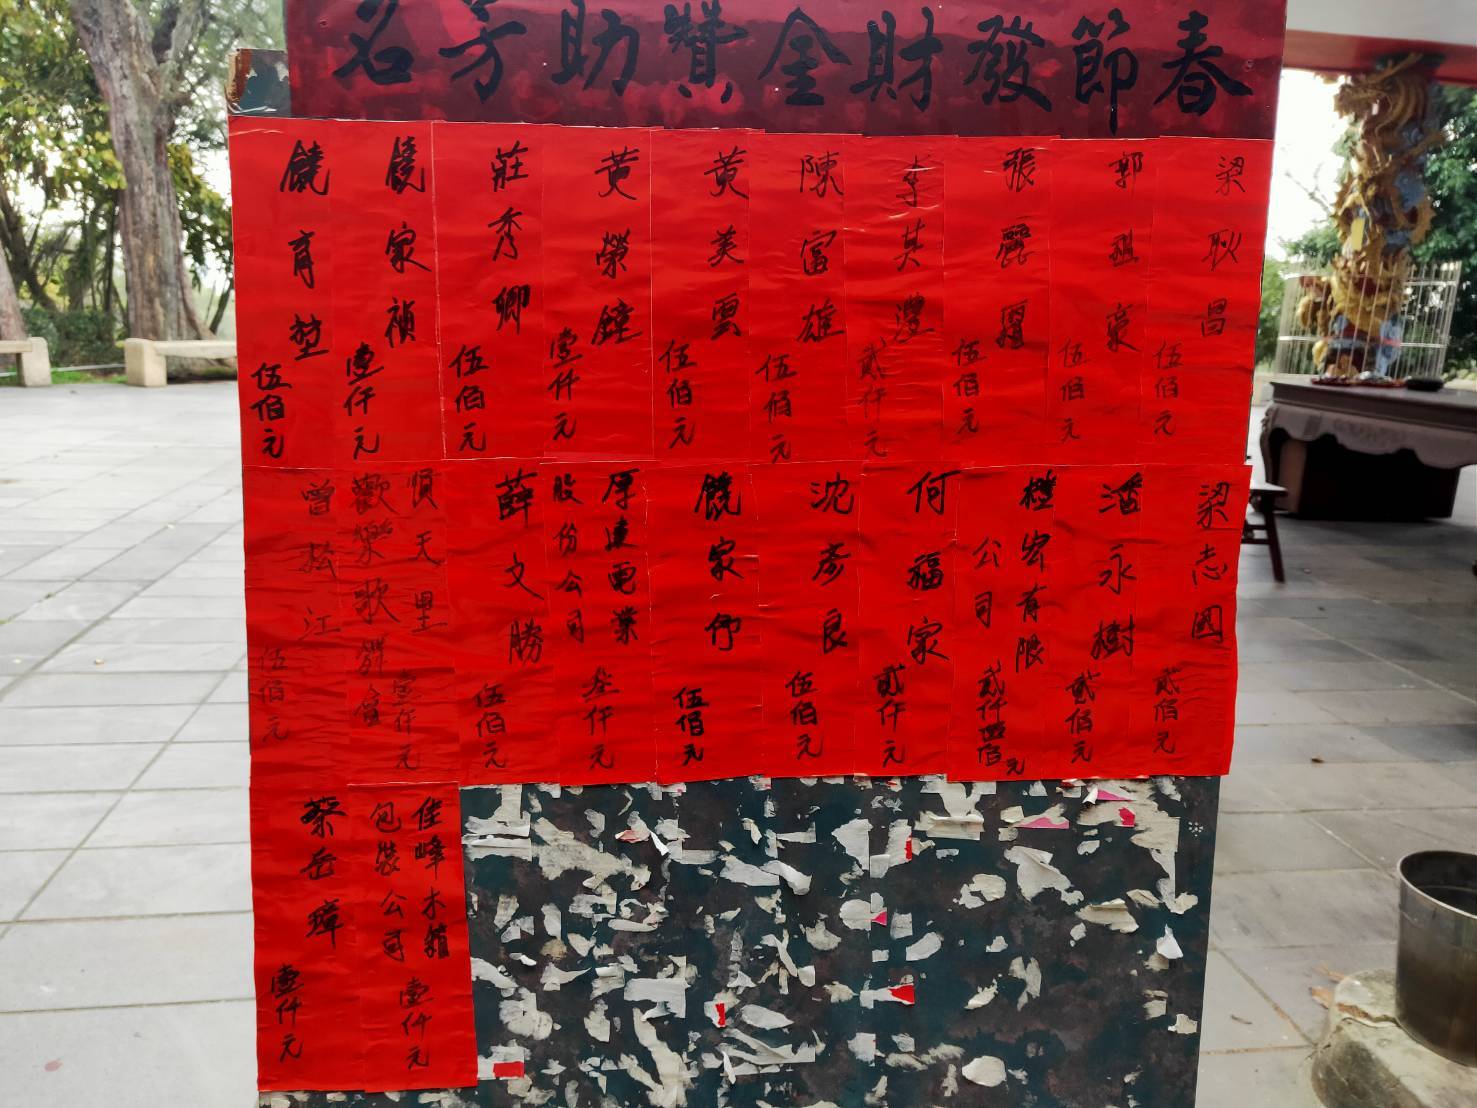 春節發財金贊助芳名
梁耿昌
伍佰元
郭祖豪
伍佰元
張麗
伍佰元
李其灃
貳仟元
陳富雄
伍佰元
黃美雲
伍佰元
黃榮鐘
壹仟元
莊秀卿
伍佰元
饒家禎
壹仟元
饒育堃
伍佰元
梁志國
貳佰元
潘永樹
貳佰元
宏有限
公司
貳仟肆佰元
何福家
貳仟元
沈彥良
伍佰元
饒家伃
伍佰元
厚連電業
股份公司
叁仟元
薛文勝
伍佰元
順天里
歡樂歌群會
壹仟元
曾松江
伍佰元
佳峰木箱
包裝公司
壹仟元
蔡岳璋
壹仟元